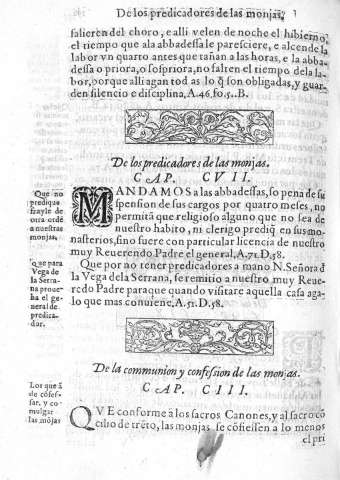 De los predicadores de las monjas,
salieren del choro, e alli velen de noche el hibierno,
el tiempo que ala abbadessa le paresciere, e alcende la
labor vn quarto antes que tañan a las horas, e la abba-
dessa o priora, o sospriora, no falten el tiempo dela la-
bor, porque alli agan todas lo q̃ son obligadas, y guar-
den silencio e disciplina. A.46.fo.5..B.
De los predicadores de las monjas.
CAP. CVII.
Que no
predique
frayle de
otra ordẽ
a nuestras
monjas.
MANDAMOS a las abbadessas, so pena de su
spension de sus cargos por quatro meses, no
permitã que religioso alguno que no sea de
nuestro habito, ni clerigo prediq̃ en sus mo-
nasterios, sino fuere con particular licencia de nuestro
muy Reuerendo Padre el general. A.71.D.58.
Que para
Vega de
la Serra-
na prouea
ha el ge-
neral de
predica-
dar.
Que por no tener predicadores a mano N. Señora d̃
la Vega dela Serrana, se remitio a nuestro muy Reue-
redo Padre para que quando visitare aquella casa aga
lo que mas conuiene. A.51.D.58.
De la communion y confession de las monjas.
CAP. CIII.
Los que ã
de cõfes-
sar, y co-
mulgar
las mõjas
QVE conforme a los sacros Canones, y al sacro cõ
cilio de trẽto, las monjas se cõfiessen a lo menos
el pri